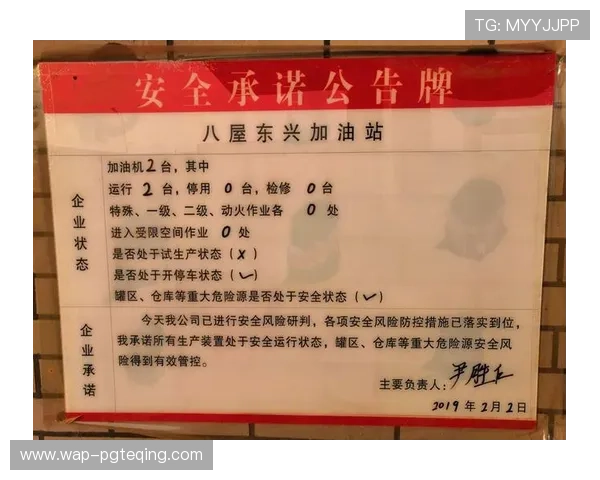 TG: MYYJJPP
安全承诺公告牌
八屋东兴加油站
企业状态
加油机2台，其中
运行 2 台，停用 0 台，检修 0 台
特殊、一级、二级、动火作业各 0 处
进入受限空间作业 0 处
是否处于试生产状态（x）
是否处于开停车状态（✓）
罐区、仓库等重大危险源是否处于安全状态（✓）
企业承诺
今天我公司已进行安全风险研判，各项安全风险防控措施已落实到位，
我承诺所有生产装置处于安全运行状态，罐区、仓库等重大危险源安全风
险得到有效管控。
主要负责人：尹胜
2019 年 2 月 2 日
www.wap-pgteqing.com